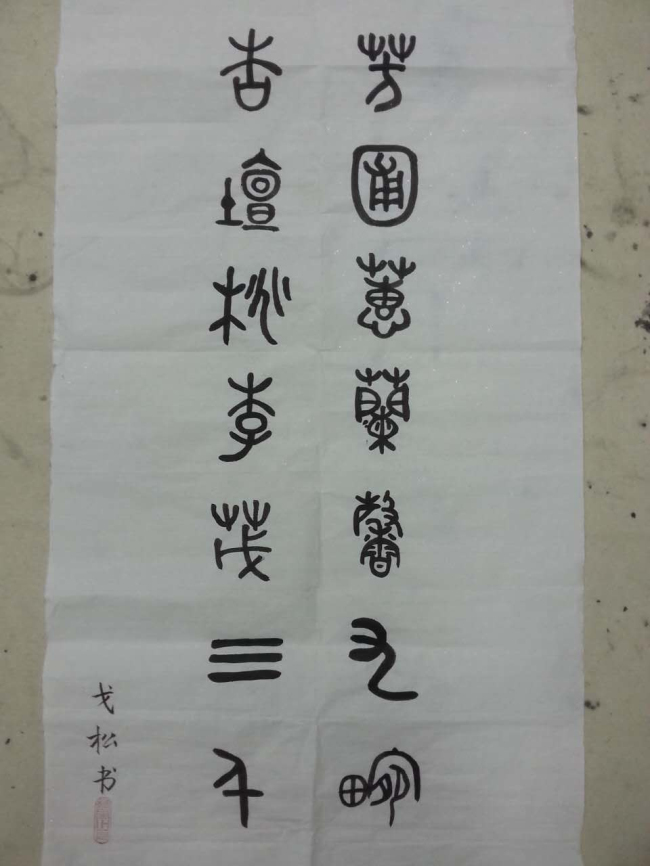 芳圃蕙蘭馨九畹
杏壇桃李茂三千
戈松书